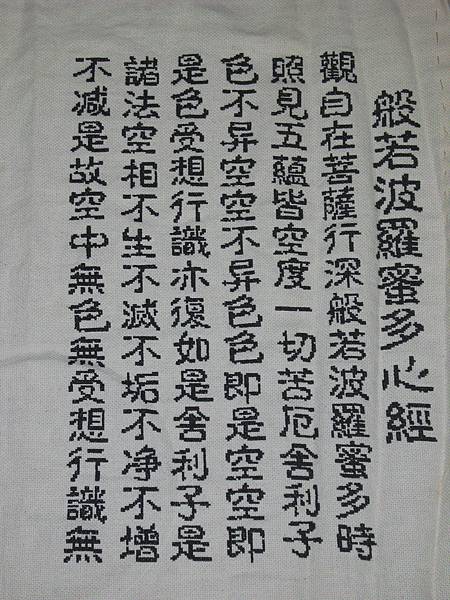 般若波羅蜜多心經
觀自在菩薩行深般若波羅蜜多時
照見五蘊皆空度一切苦厄舍利子
色不异空空不异色色即是空空即
是色受想行識亦復如是舍利子是
諸法空相不生不滅不垢不净不增
不减是故空中無色無受想行識無